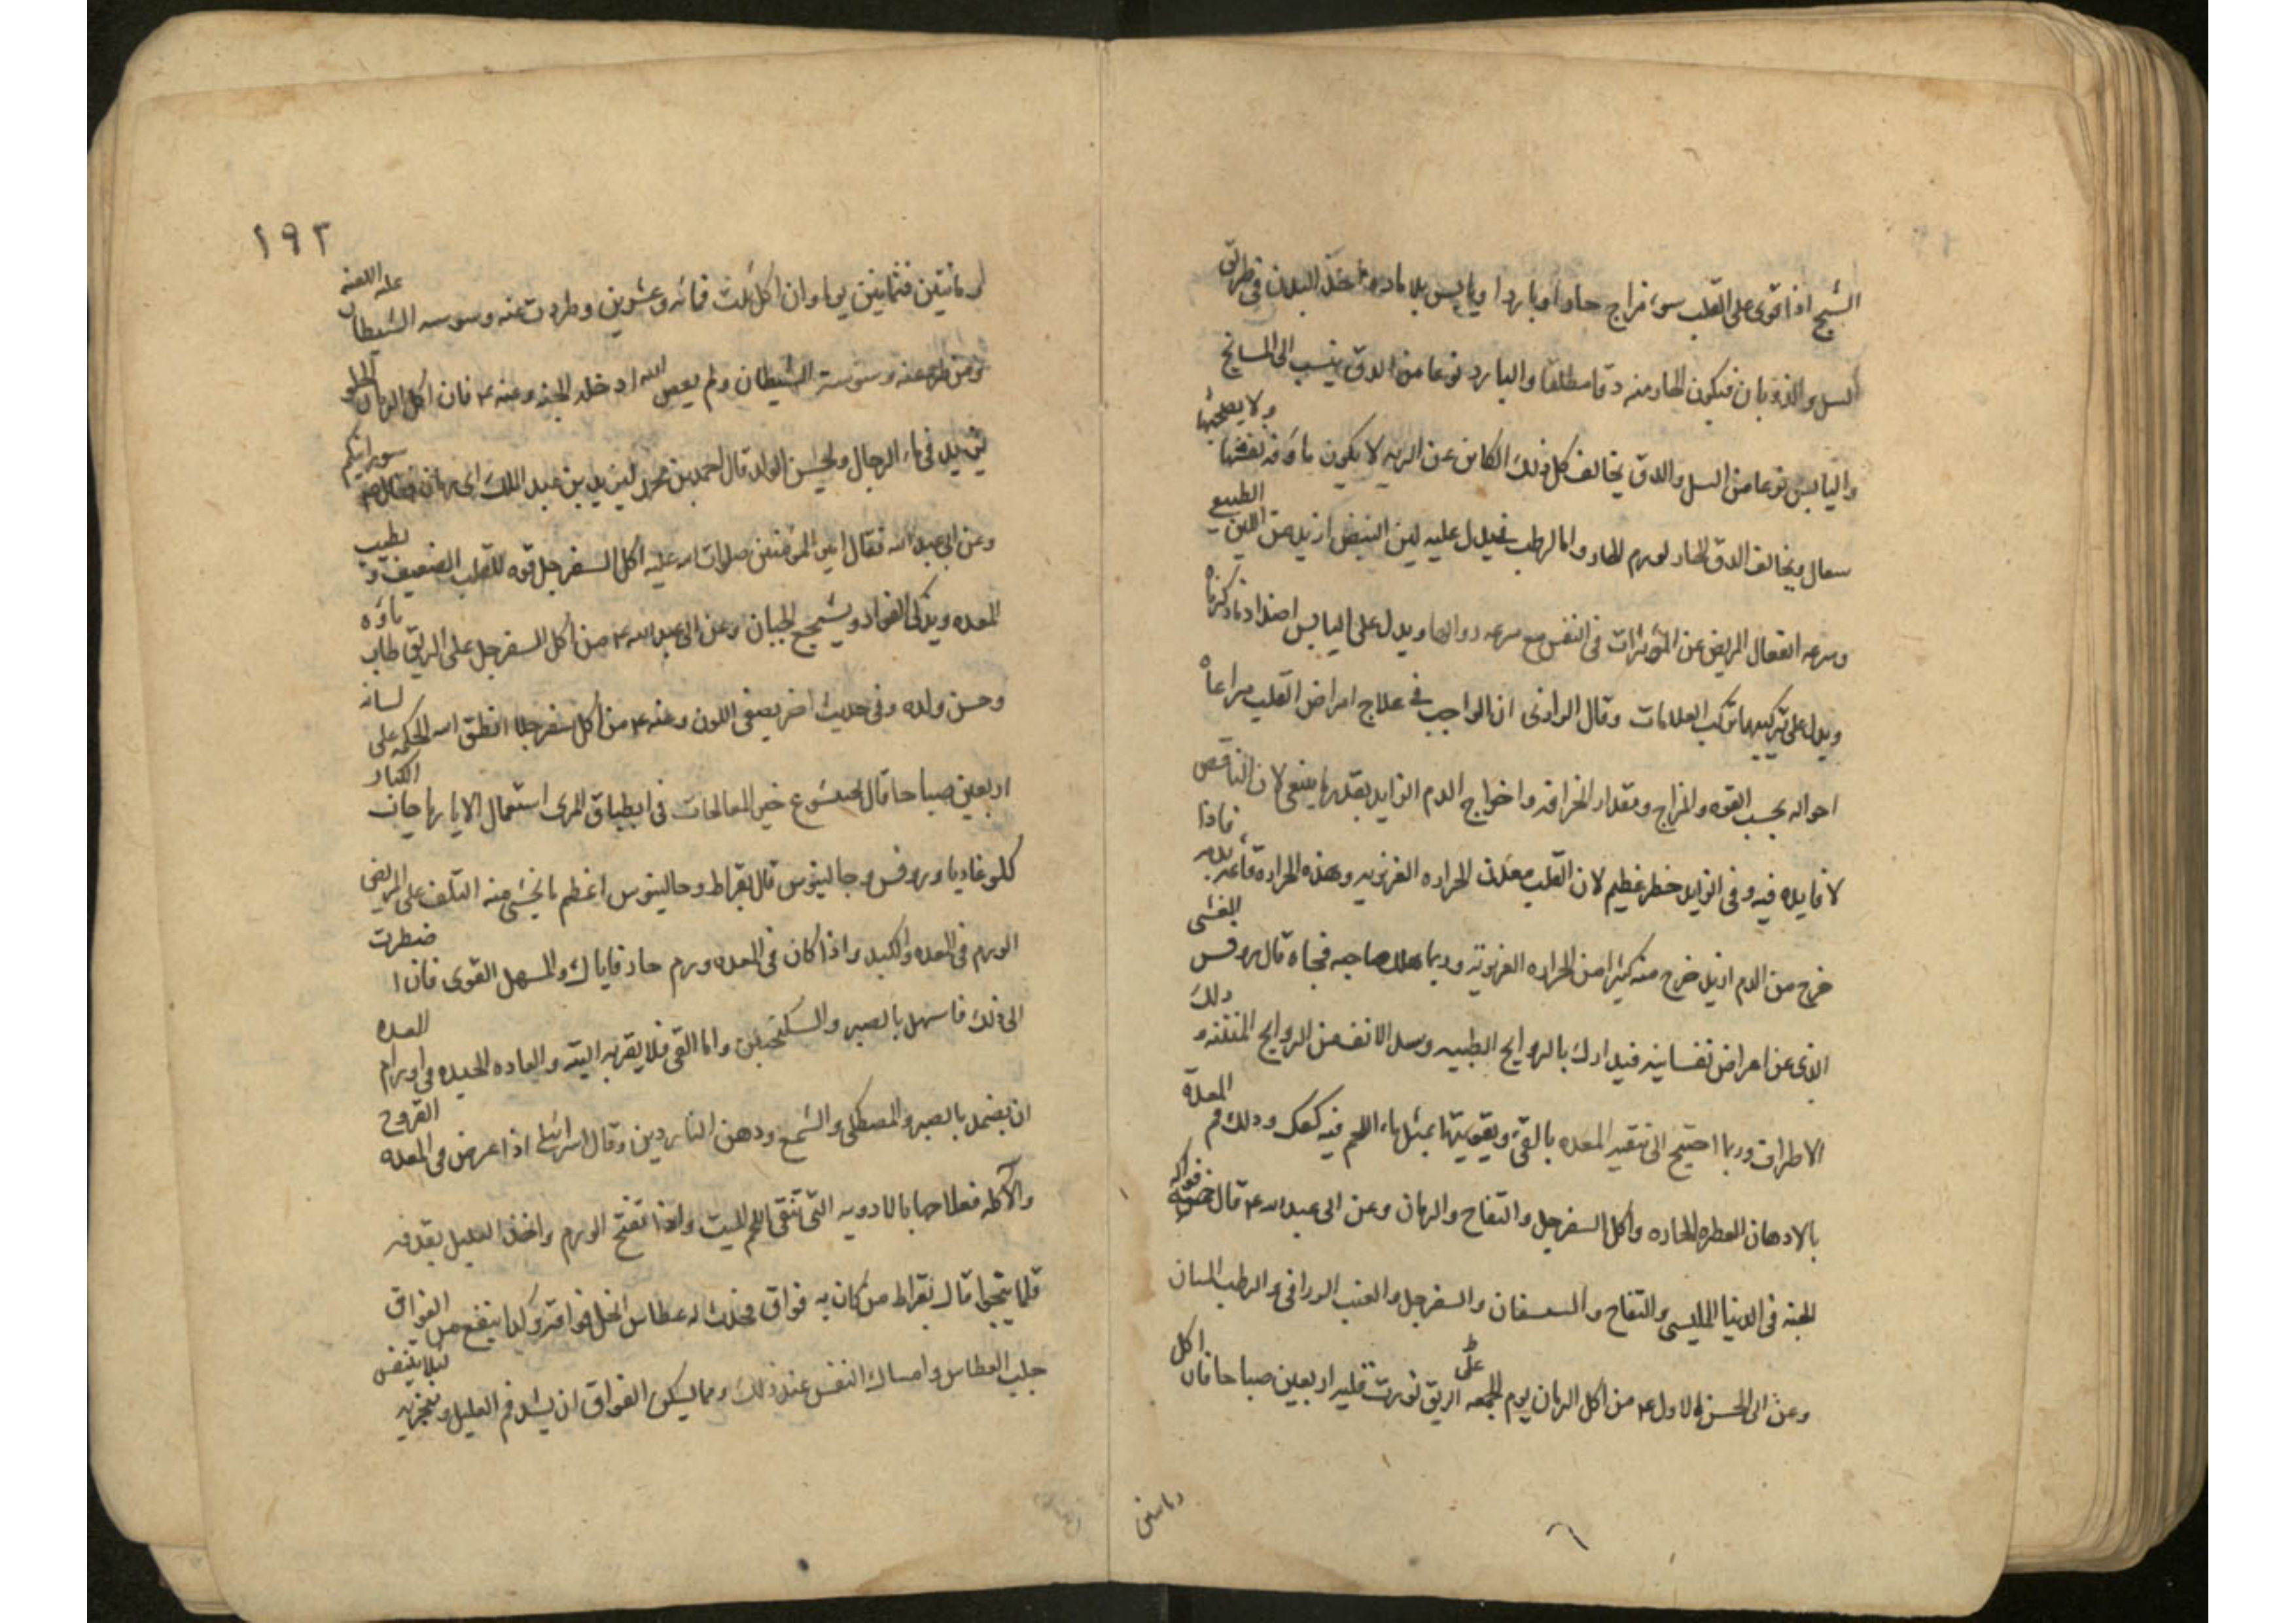 الشيخ اذا قوى على القلب سوء مزاج حار او بارد او يابس بلا ماده اخذ البدن في طريق
السل والذوبان فيكون الحار منه دقا مطلقا والبارد نوعا من الدق ينسب الى المشايخ
واليابس نوعا من السل والدق يخالف كل ذلك الكاين عن الريه لا يكون ماؤفه نفسها ولا يصحبها
سعال ويخالف الدق الحار لورم الحار واما الرطب فيدل عليه لين النبض ازيد من اللين الطبيعي
وسرعه انفعال المريض عن المؤثرات في النفس مع سرعه زوالها ويدل على اليابس اضداد ما ذكرناه
ويدل على تركيبها تركب العلامات وقال الرازى ان الواجب في علاج امراض القلب مراعاه
احواله بحسب القوه والمزاج ومقدار انحرافه واخراج الدم الزايد بقدر ما ينبغى لان الناقص
لا فايده فيه وفى الزايد خطر عظيم لان القلب معدن الحراره الغريزيه وهذه الحراره قائمه بدم فاذا
خرج من الدم ازيد خرج منه كثيرا من الحراره الغريزيه وربما هلك صاحبه فجاه قال روفس الغشى
الذى عن اعراض نفسانيه فيدارك بالروايح الطيبه وسد الانف من الروايح المنتنه و دلك
الاطراف وربما احتيج الى تنقيه المعده بالقئ وتقويتها بمثل ماء اللحم فيه كعك ودلك فم المعدة
بالادهان العطره الحاره واكل السفرجل والتفاح والرمان وعن ابى عبد الله ع قال خمسه فواكه
الجنه فى الدنيا المليسى والتفاح والسفرجل والعنب الرازقى والرطب المشان
وعن ابى الحسن الاول ع من اكل الرمان يوم الجمعه على الريق نورت قلبه اربعين صباحا فان اكل
رمانتين
١٩٢
رمانتين فثمانين يوما وان اكل ثلث فمائه وعشرين وطردت عنه وسوسه الشيطان عليه اللعنه
ومن طرد عنه وسوسة الشيطان ولم يعص الله ادخله الجنه وعنه ع فان اكل الرمان الحلو
يزيد فى ماء الرجال ويحسن الولد قال احمد بن محمد ليزيد بن عبد الملك اى رمان فقال سورانيكم
وعن ابى عبد الله فقال امير المؤمنين صلوات الله عليه اكل السفرجل قوه للقلب الضعيف و يطيب
المعده ويذكى الفواد ويشجع الجبان وعن ابى عبد الله ع من اكل السفرجل على الريق طاب ماؤه
وحسن ولده وفى حديث اخر يصفى اللون وعنه ع من اكل سفرجلا انطق الله الحكمه على لسانه
اربعين صباحا قال بختيشوع خير المعالجات فى انطباق المرى استعمال الايارجات الكبار
كلوغاديا وروفس وجالينوس قال بقراط وجالينوس اعظم ما يخشى منه التلف على المريض
الورم فى المعده والكبد واذا كان فى المعده ورم حار فاياك والمسهل القوى فان اضطرت
الى ذلك فاسهل بالصبر والسكنجبين واما القئ فلا يقربه البته والعاده الجيده فى اورام المعده
ان يضمد بالصبر والمصطكى والشمع ودهن الناردين وقال اسرائيل اذا عرض فى المعده القروح
والآكله فعلاجها بالادويه التى تنقى اللحم الميت واذا تفتح الورم واخذ العليل يقذفه
قلما ينجوا قال بقراط من كان به فواق فحدث له عطاس انحل فواقه وكذا ينفع من الفواق
جلب العطاس وامساك النفس عند ذلك ومما يسكن الفواق ان يشد فم العليل ومنخريه ليلا يتنفس